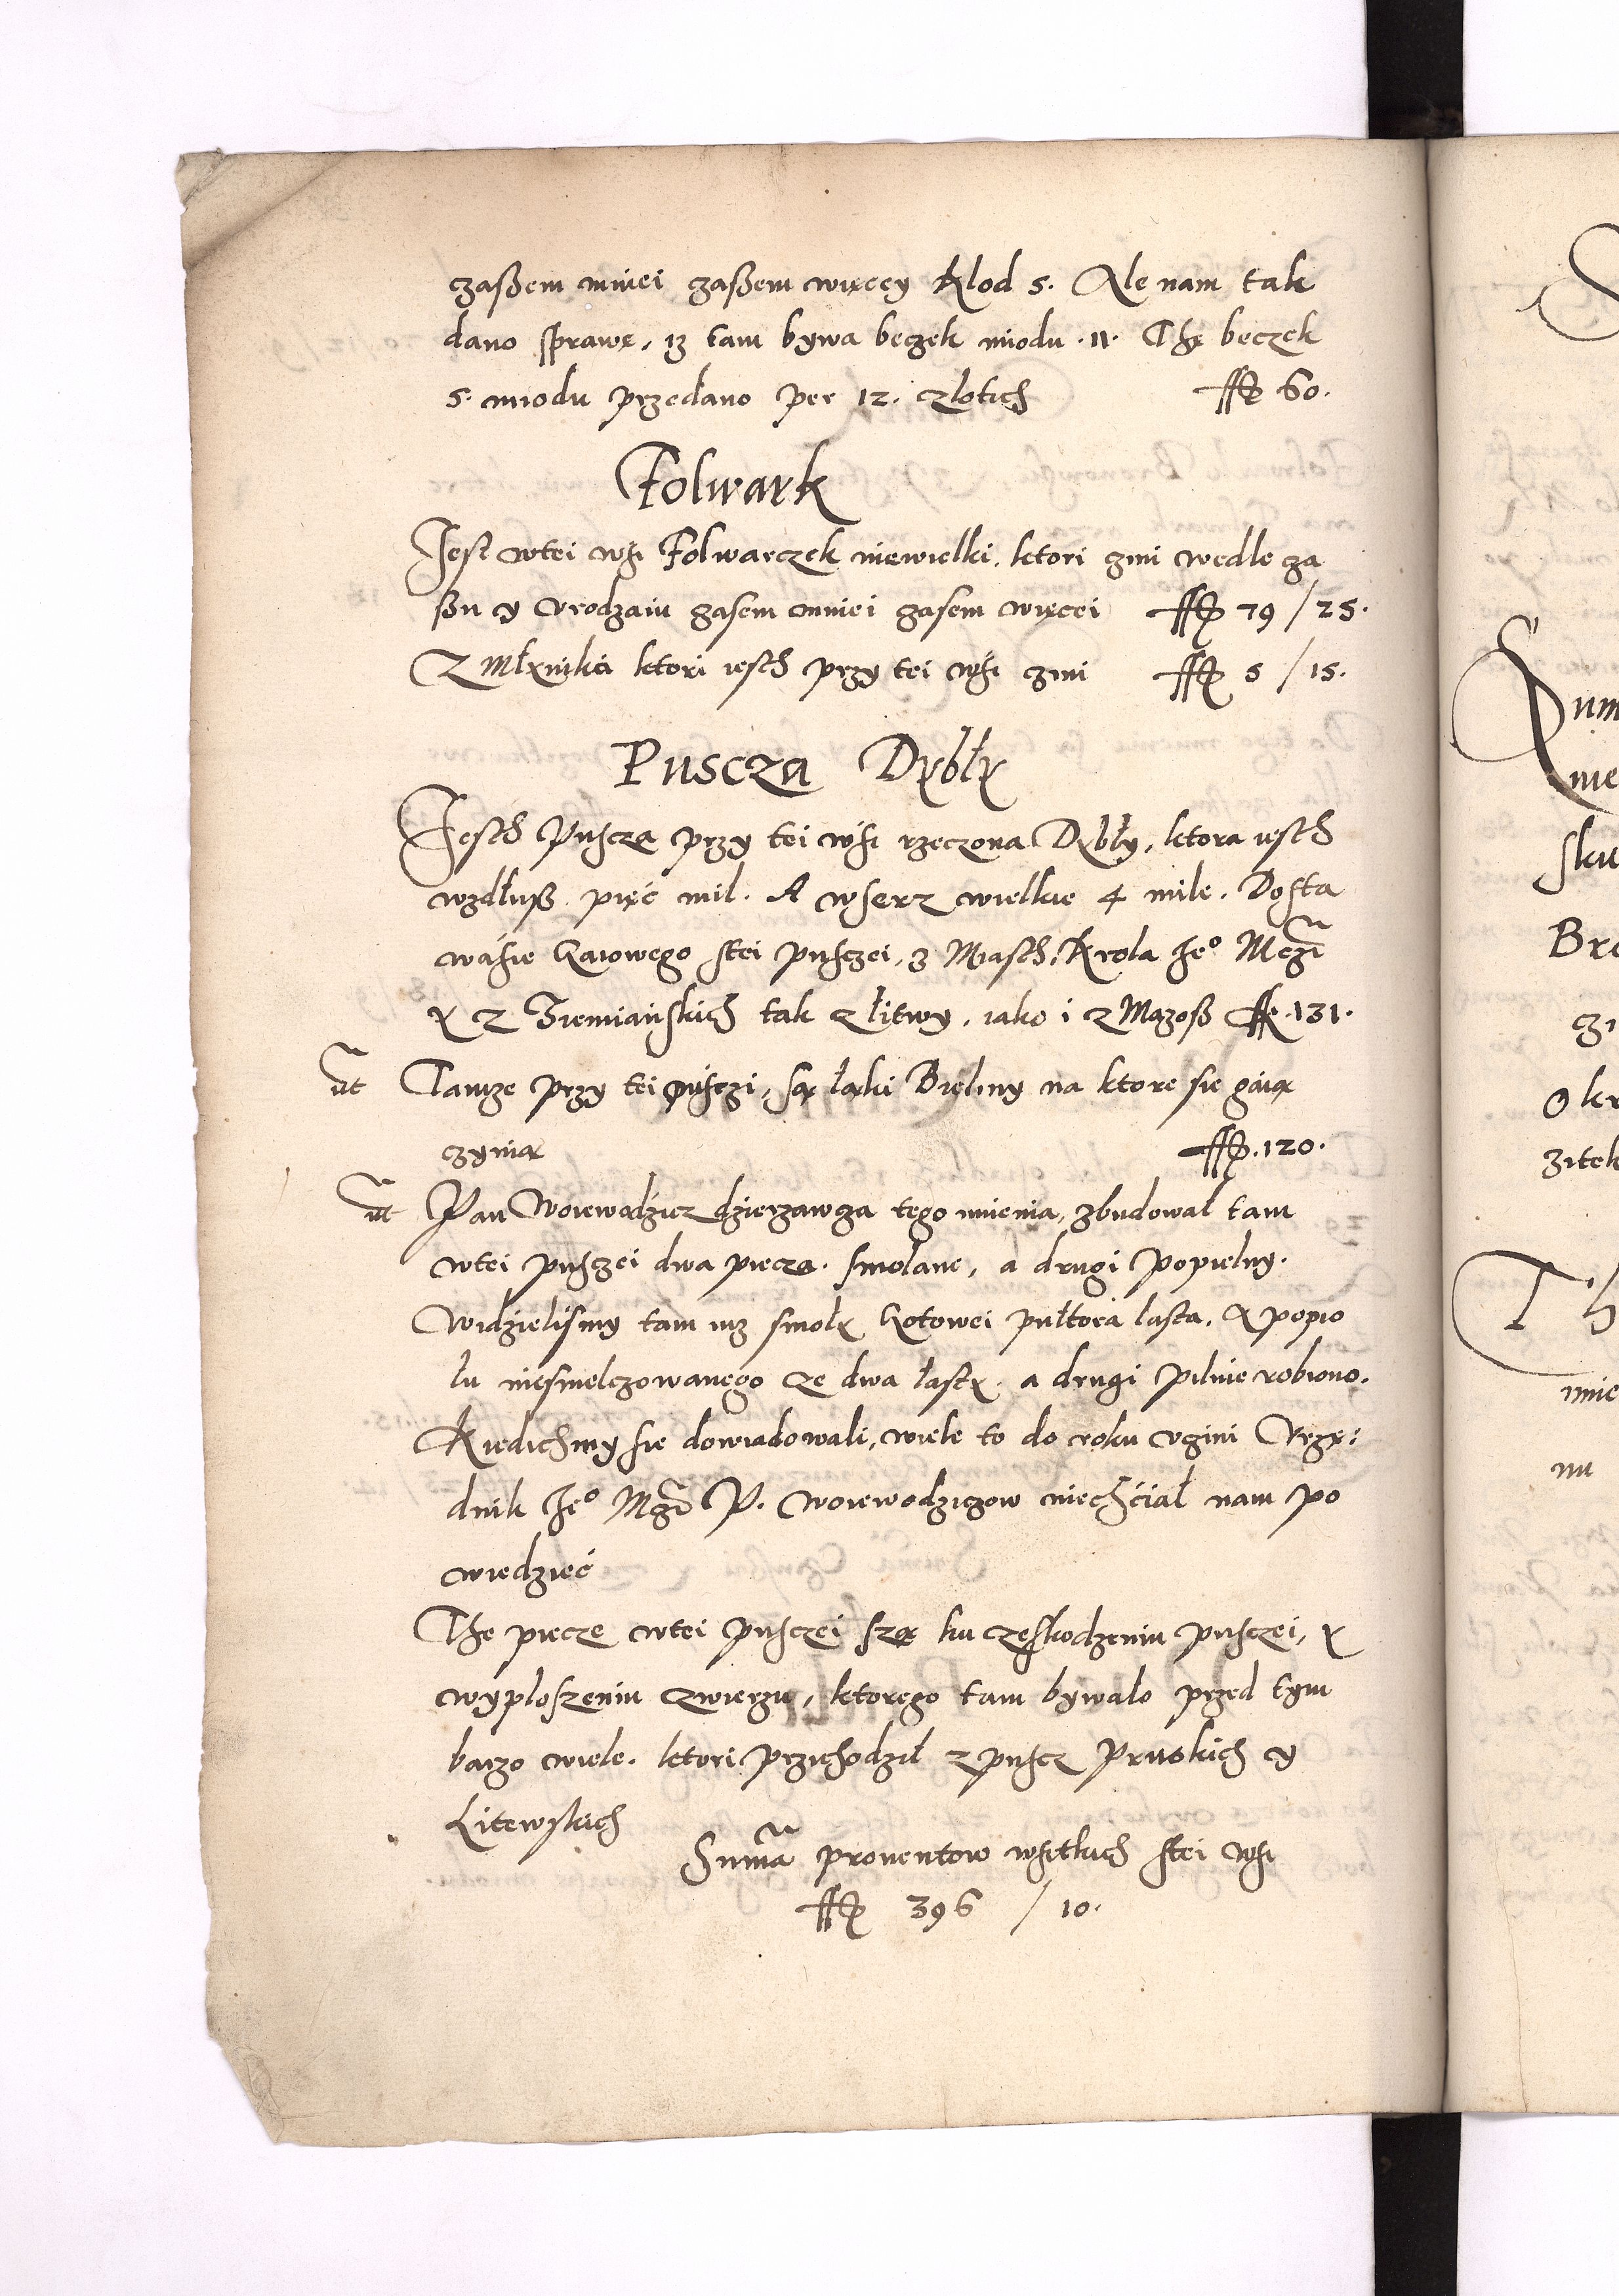 czaßem mniei czaßem więcey Klod 5. Ale nam tak
dano sprawę, iz tam bywa beczek miodu .11. Thę beczek
5. miodu przedano per 12. zlotich ff 60.
Folwark
Jest wtei wsi Folwarczek niewielki, ktori czini wedle cza
ßu y vrodzaiu czasem mniei czasem więcei ff 79 / 25.
Z Młynika ktori iesth przy tei wśi czini ff 5 / 15.
Puscza Dybły
Jesth Puscza przy tei wśi rzeczona Dybły, ktora iesth
wzdłuß pięć mil. A wserz wielkie 4 mile. Dosta
waśie Gaiowego stei pusczei, z Miasth Krola Jeo Mczi
y z Ziemiańskich tak z Litwy, iako i z Mazosß ff .131.
ut Tamze przy tei pusczi, są łąki Bieliny na ktore sie gaią
czynią ff .120.
ut Pan Woiewodzicz dzierzawcza tego imienia, zbudował tam
wtei pusczei dwa piecza. smolane, a drugi popielny.
Widzielismy tam iuz smoły Gotowei pułtora lasta, A popio
łu niesmelczowanego ze dwa łasty. a drugi pilnie robiono.
Kiedichmy sie dowiadowali, wiele to do roku vczini Vrzę:
dnik Jeo Mczi P. woiewodziczow niechćiał nam po
wiedzieć
The piecze wtei pusczei szą ku zeskodzeniu pusczei, y
wyploszeniu zwierzu, ktorego tam bywało przed tym
barzo wiele. ktori przichodził z puscz Pruskich y
Litewskich
Suma prouentow wsitkich stei wsi
ff 396 / 10.